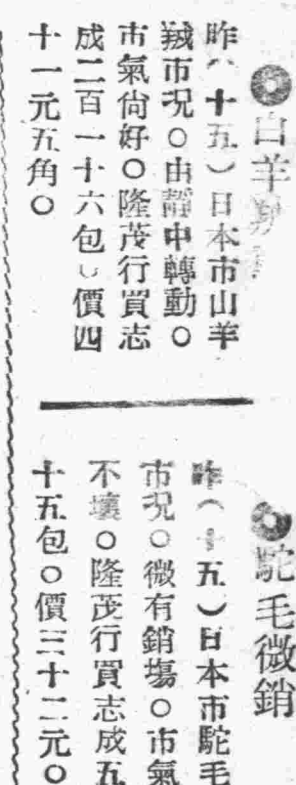 白羊
昨（十五）日本市山羊
羢市况○由靜中轉動○
市氣尙好○隆茂行買志
成二百一十六包○價四
十一元五角○
駝毛微銷
昨（十五）日本市駝毛
市况○微有銷塲○市氣
不壞○隆茂行買志成五
十五包○價三十二元○